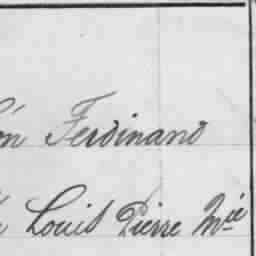 on Ferdinand
Louis Pierre Mie